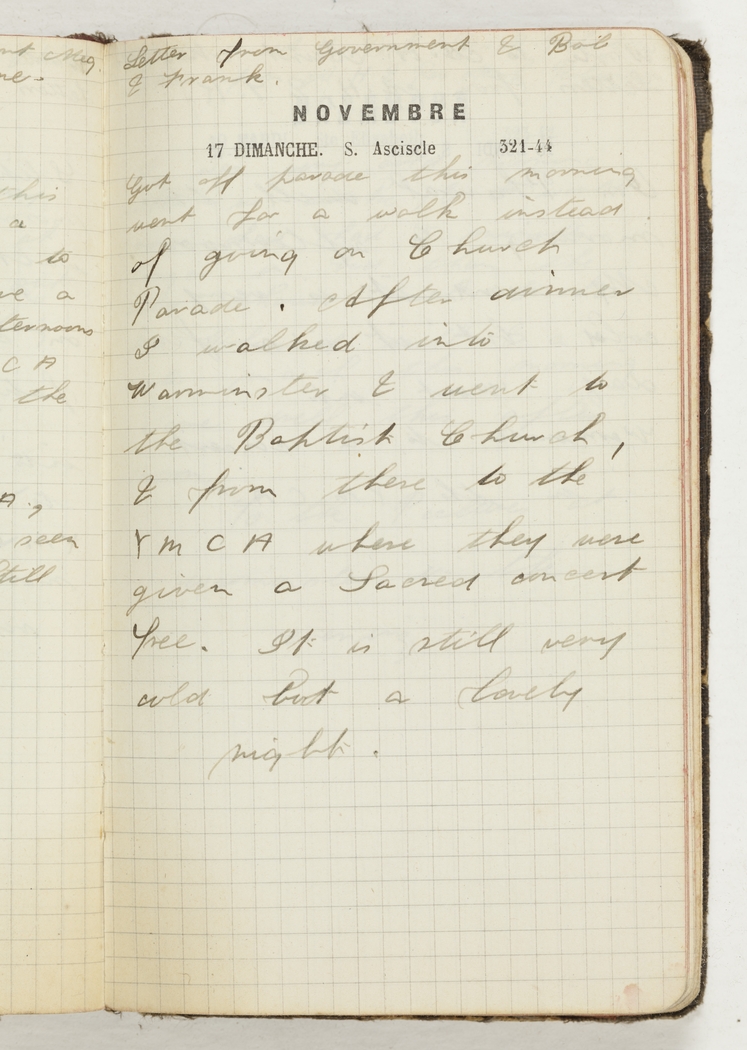 Letter from Government & Bob
& Frank.
NOVEMBRE
17 DIMANCHE. S. Asciscle 321-44
Got off parade this morning
went for a walk instead.
of going on Church
Parade. After dinner
I walked into
Warminster & went to
the Baptist Church,
& from there to the
YMCA where they were
given a Sacred concert
free. It is still very
cold but a lovely
night.
this
a
to
ve a
ternoons
C A
the
A.,
seen
still